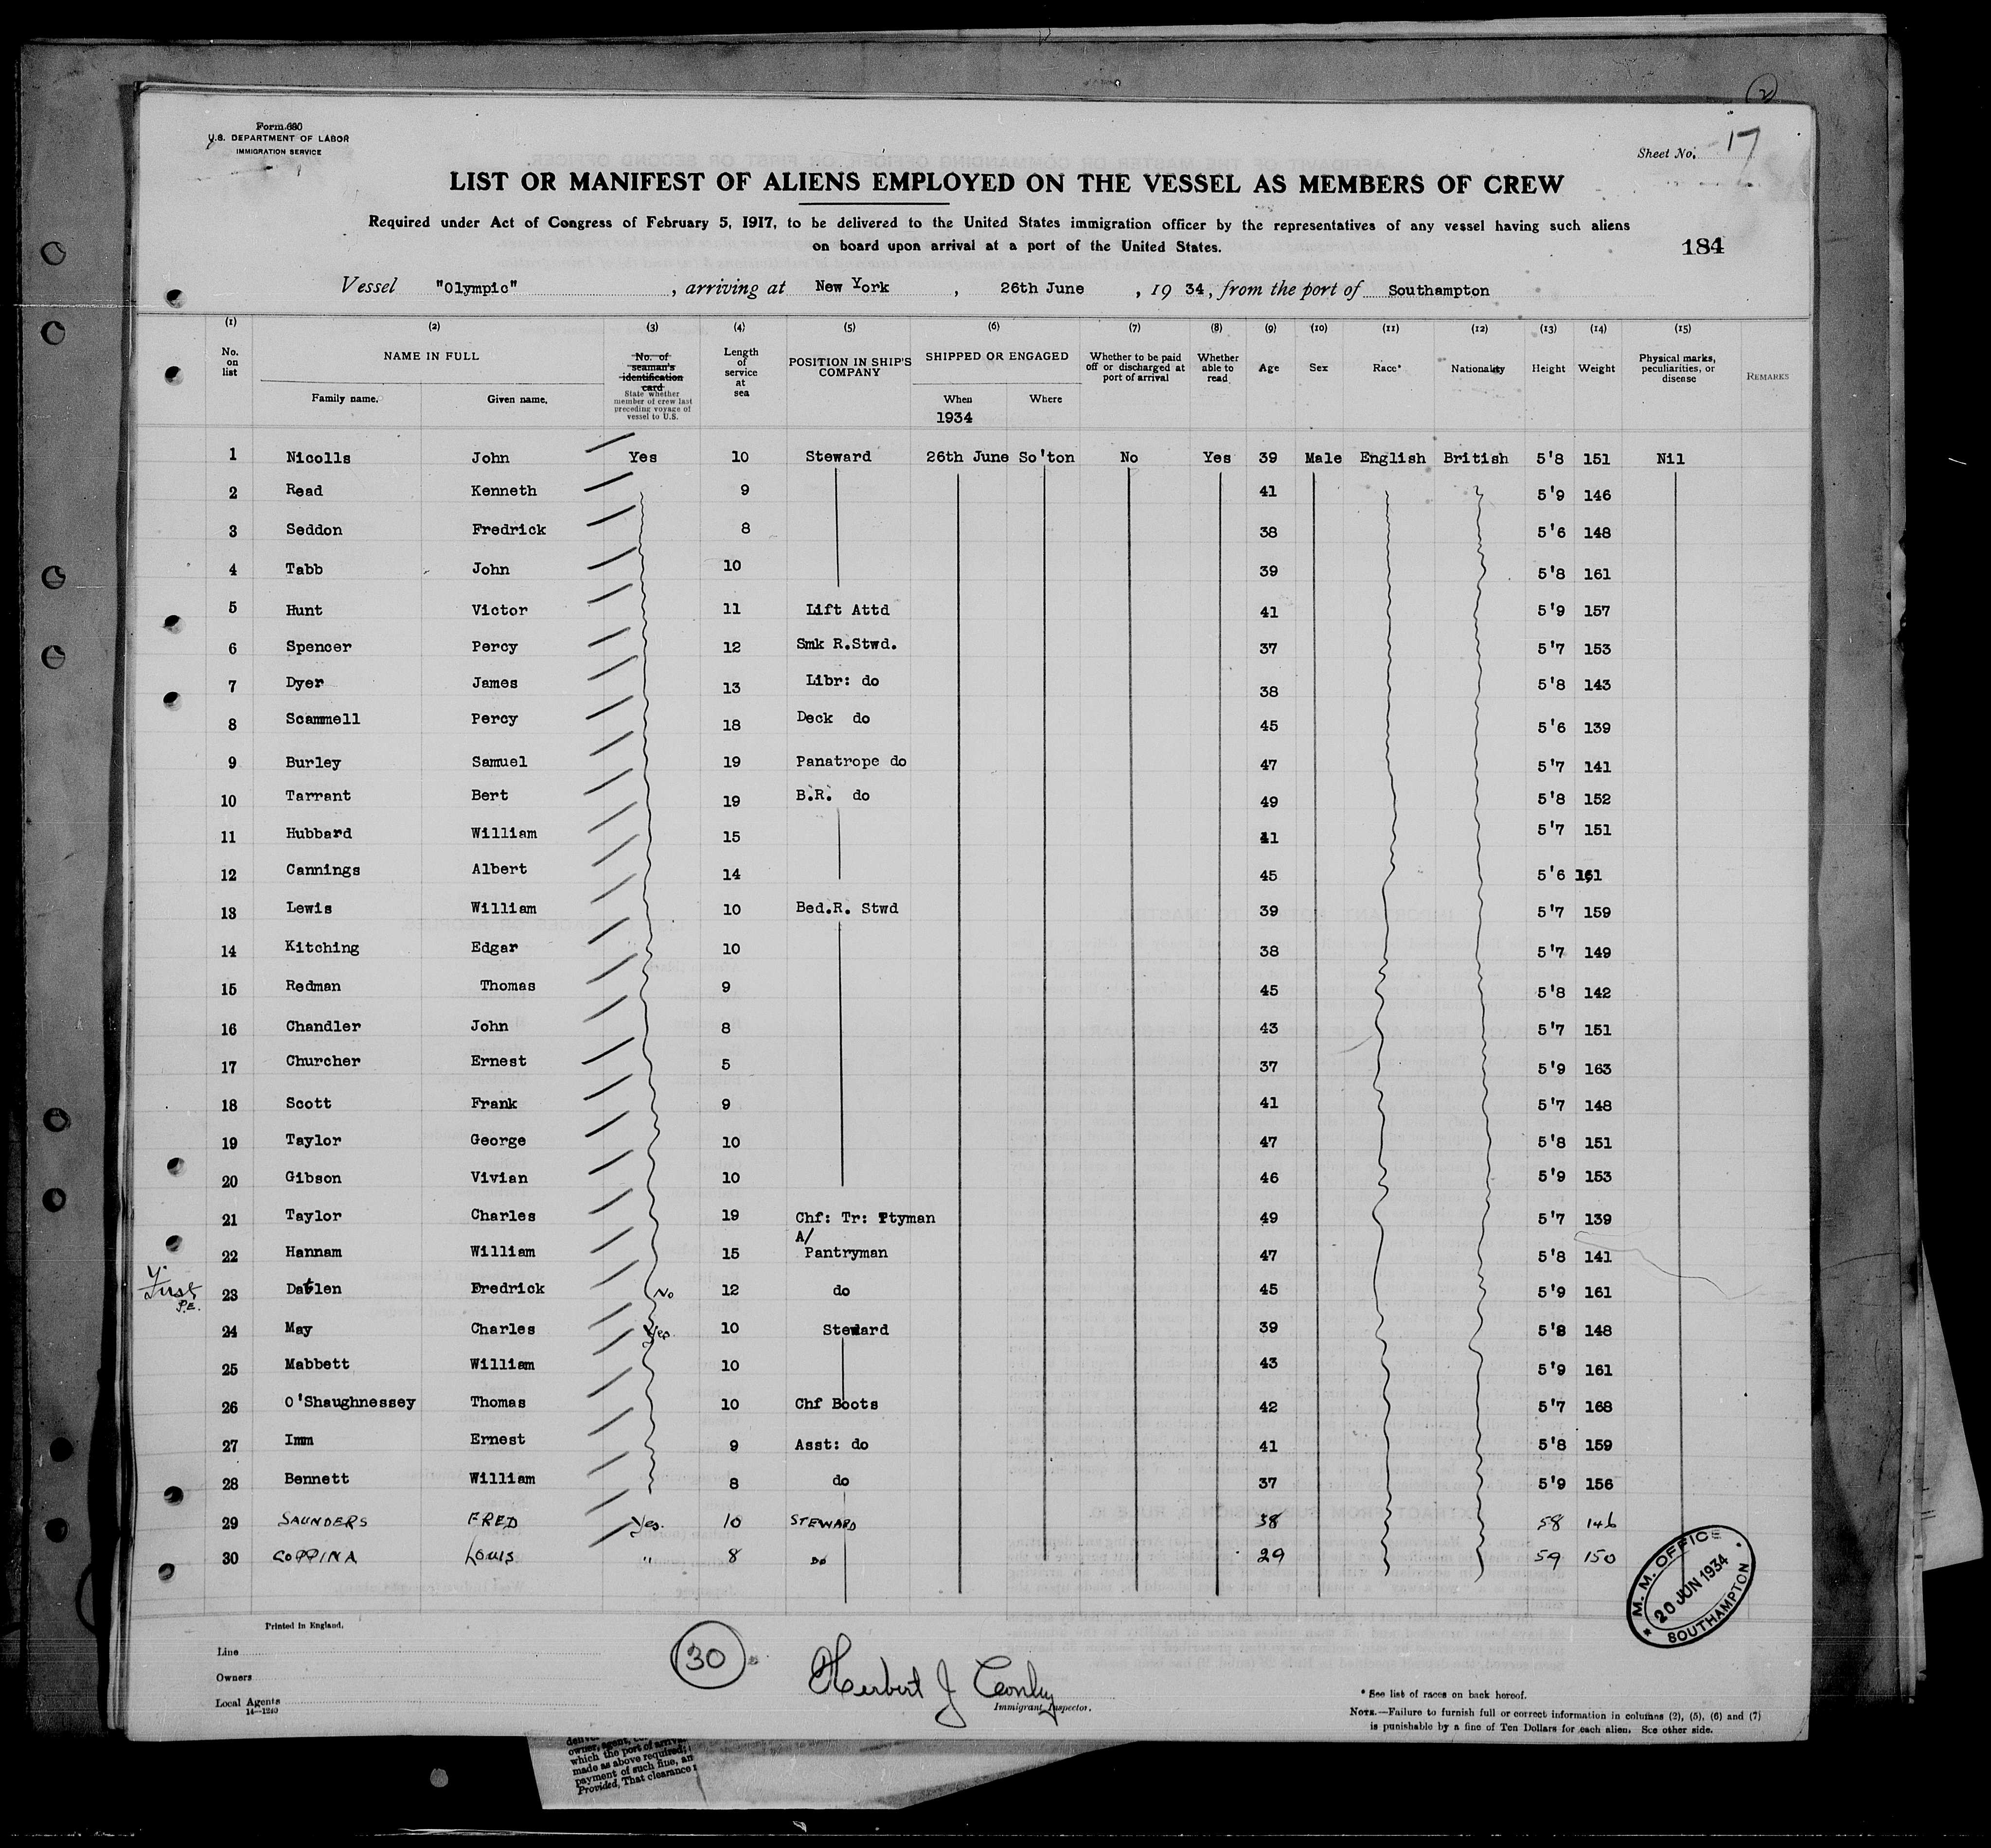 Form 680
U.S. DEPARTMENT OF LABOR
IMMIGRATION SERVICE
Sheet No. 17
LIST OR MANIFEST OF ALIENS EMPLOYED ON THE VESSEL AS MEMBERS OF CREW
Required under Act of Congress of February 5, 1917, to be delivered to the United States immigration officer by the representatives of any vessel having such aliens
on board upon arrival at a port of the United States.
184
Vessel "Olympic", arriving at New York, 26th June, 1934, from the port of Southampton
(1) (2) (3) (4) (5) (6) (7) (8) (9) (10) (11) (12) (13) (14) (15)
No. on list NAME IN FULL Family name. Given name. No. of seaman's identification card State whether member of crew last preceding voyage of vessel to U.S. Length of service at sea POSITION IN SHIP'S COMPANY SHIPPED OR ENGAGED When 1934 Where Whether to be paid off or discharged at port of arrival Whether able to read Age Sex Race* Nationality Height Weight Physical marks, peculiarities, or disease REMARKS
1 Nicolls John Yes 10 Steward 26th June So'ton No Yes 39 Male English British 5'8 151 Nil
2 Read Kenneth 9 41 5'9 146
3 Seddon Fredrick 8 38 5'6 148
4 Tabb John 10 39 5'8 161
5 Hunt Victor 11 Lift Attd 41 5'9 157
6 Spencer Percy 12 Smk R.Stwd. 37 5'7 153
7 Dyer James 13 Libr: do 38 5'8 143
8 Scammell Percy 18 Deck do 45 5'6 139
9 Burley Samuel 19 Panatrope do 47 5'7 141
10 Tarrant Bert 19 B.R. do 49 5'8 152
11 Hubbard William 15 41 5'7 151
12 Cannings Albert 14 45 5'6 161
13 Lewis William 10 Bed.R. Stwd 39 5'7 159
14 Kitching Edgar 10 38 5'7 149
15 Redman Thomas 9 45 5'8 142
16 Chandler John 8 43 5'7 151
17 Churcher Ernest 5 37 5'9 163
18 Scott Frank 9 41 5'7 148
19 Taylor George 10 47 5'8 151
20 Gibson Vivian 10 46 5'9 153
21 Taylor Charles 19 Chf: Tr: Ptyman 49 5'7 139
22 Hannam William 15 A/ Pantryman 47 5'8 141
First P.E. 23 Datlen Fredrick No 12 do 45 5'9 161
24 May Charles Yes. 10 Steward 39 5'8 148
25 Mabbett William 10 43 5'9 161
26 O'Shaughnessey Thomas 10 Chf Boots 42 5'7 168
27 Imm Ernest 9 Asst: do 41 5'8 159
28 Bennett William 8 do 37 5'9 156
29 SAUNDERS FRED Yes. 10 STEWARD 38 58 146
30 COPPINA LOUIS " 8 DO 29 59 150
M. M. OFFICE
20 JUN 1934
SOUTHAMPTON
Printed in England.
Line
Owners
Local Agents
14—1240
30
Herbert J Conly
Immigrant Inspector.
* See list of races on back hereof.
NOTE.—Failure to furnish full or correct information in columns (2), (5), (6) and (7)
is punishable by a fine of Ten Dollars for each alien. See other side.
owner, agent,
which the port of arrival
made as above required;
payment of such fine, an
Provided, That clearance